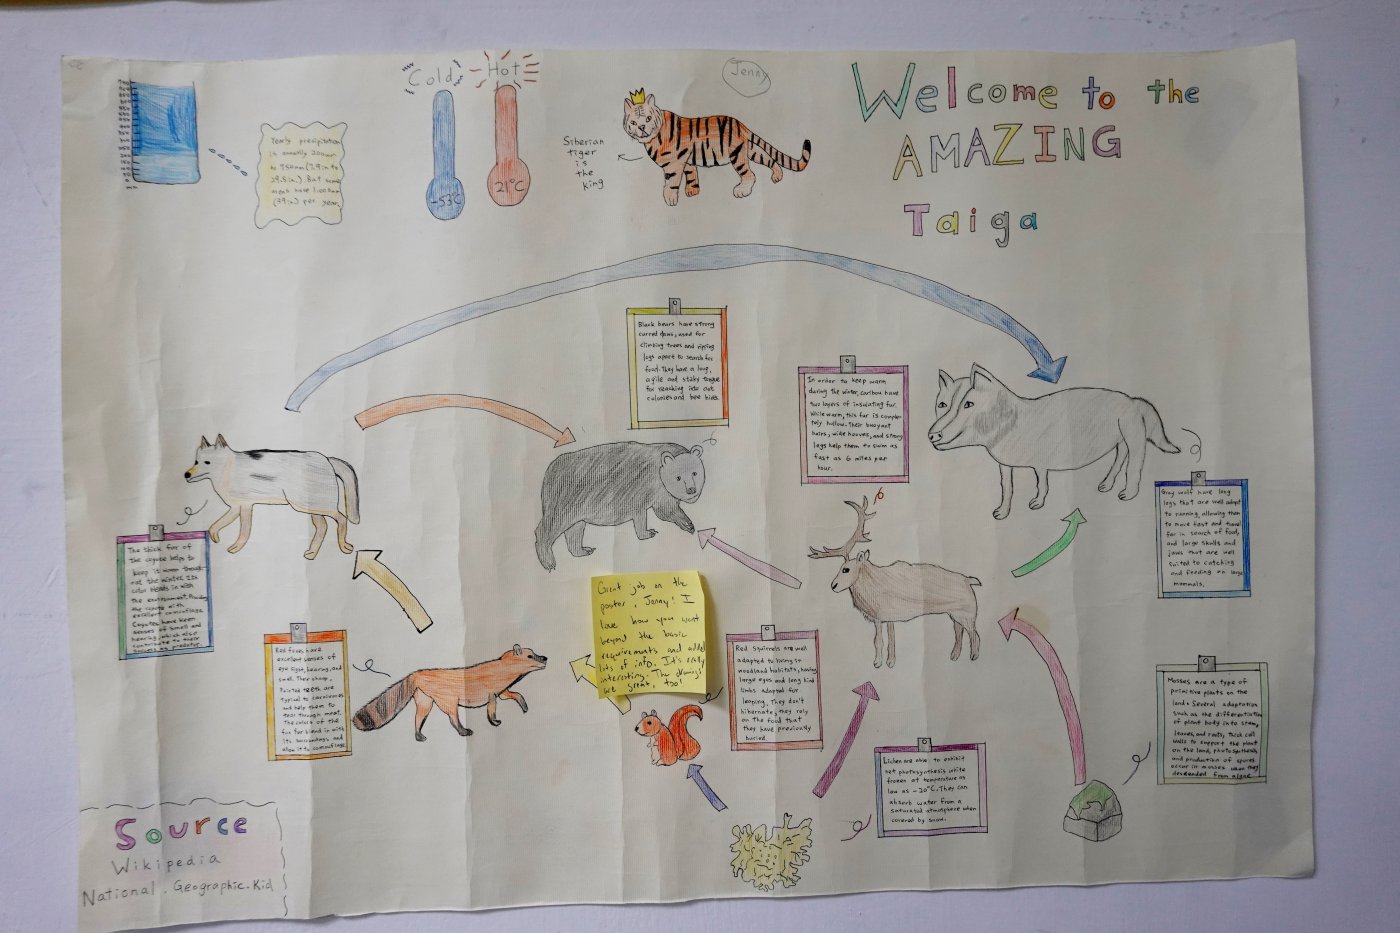 Cold
Hot
-53°C
21°C
Jenny
Siberian
tiger
is
the
king
Welcome to the
AMAZING
Taiga
Yearly precipitation
is usually 200mm
to 750mm (7.9in to
29.5in). But some
areas have 1,000mm
(39in) per year.
Black bears have strong
curved claws, used for
climbing trees and ripping
logs apart to search for
food. They have a long,
agile and sticky tongue
for reaching into ant
colonies and bee hives.
In order to keep warm
during the winter, caribou have
two layers of insulating fur.
While warm, this fur is comple-
tely hollow. Their buoyant
hairs, wide hooves, and strong
legs help them to swim as
fast as 6 miles per
hour.
Gray wolf have long
legs that are well adapt
to running, allowing them
to move fast and travel
far in search of food,
and large skulls and
jaws that are well
suited to catching
and feeding on large
mammals.
The thick fur of
the coyote helps to
keep it warm through
out the winter. Its
color blends in with
the environment. Providing
the coyote with
excellent camouflage.
Coyotes have keen
senses of smell and
hearing, which also
contribute to their
success as predator.
Red foxes have
excellent senses of
eye sight, hearing, and
smell. Their sharp,
Pointed teeth are
typical to carnivores
and help them to
tear through meat.
The colors of the
fox fur blend in with
its surroundings and
allow it to camouflage.
Great job on the
poster, Jenny! I
love how you went
beyond the basic
requirements and added
lots of info. It's really
interesting. The drawings
are great, too!
Red squirrels are well
adapted to living in
woodland habitats, having
large eyes and long hind
limbs adapted for
leaping. They don't
hibernate; they rely
on the food that
they have previously
buried.
Lichen are able to exhibit
net photosynthesis while
frozen at temperature as
low as -20°C. They can
absorb water from a
saturated atmosphere when
covered by snow.
Mosses are a type of
primitive plants on the
land. Several adaptation
such as the differentiation
of plant body into stem,
leaves, and roots, thick cell
walls to support the plant
on the land, photosynthesis
and production of spores
occur in mosses when they
descended from algae.
Source
Wikipedia
National. Geographic. Kid